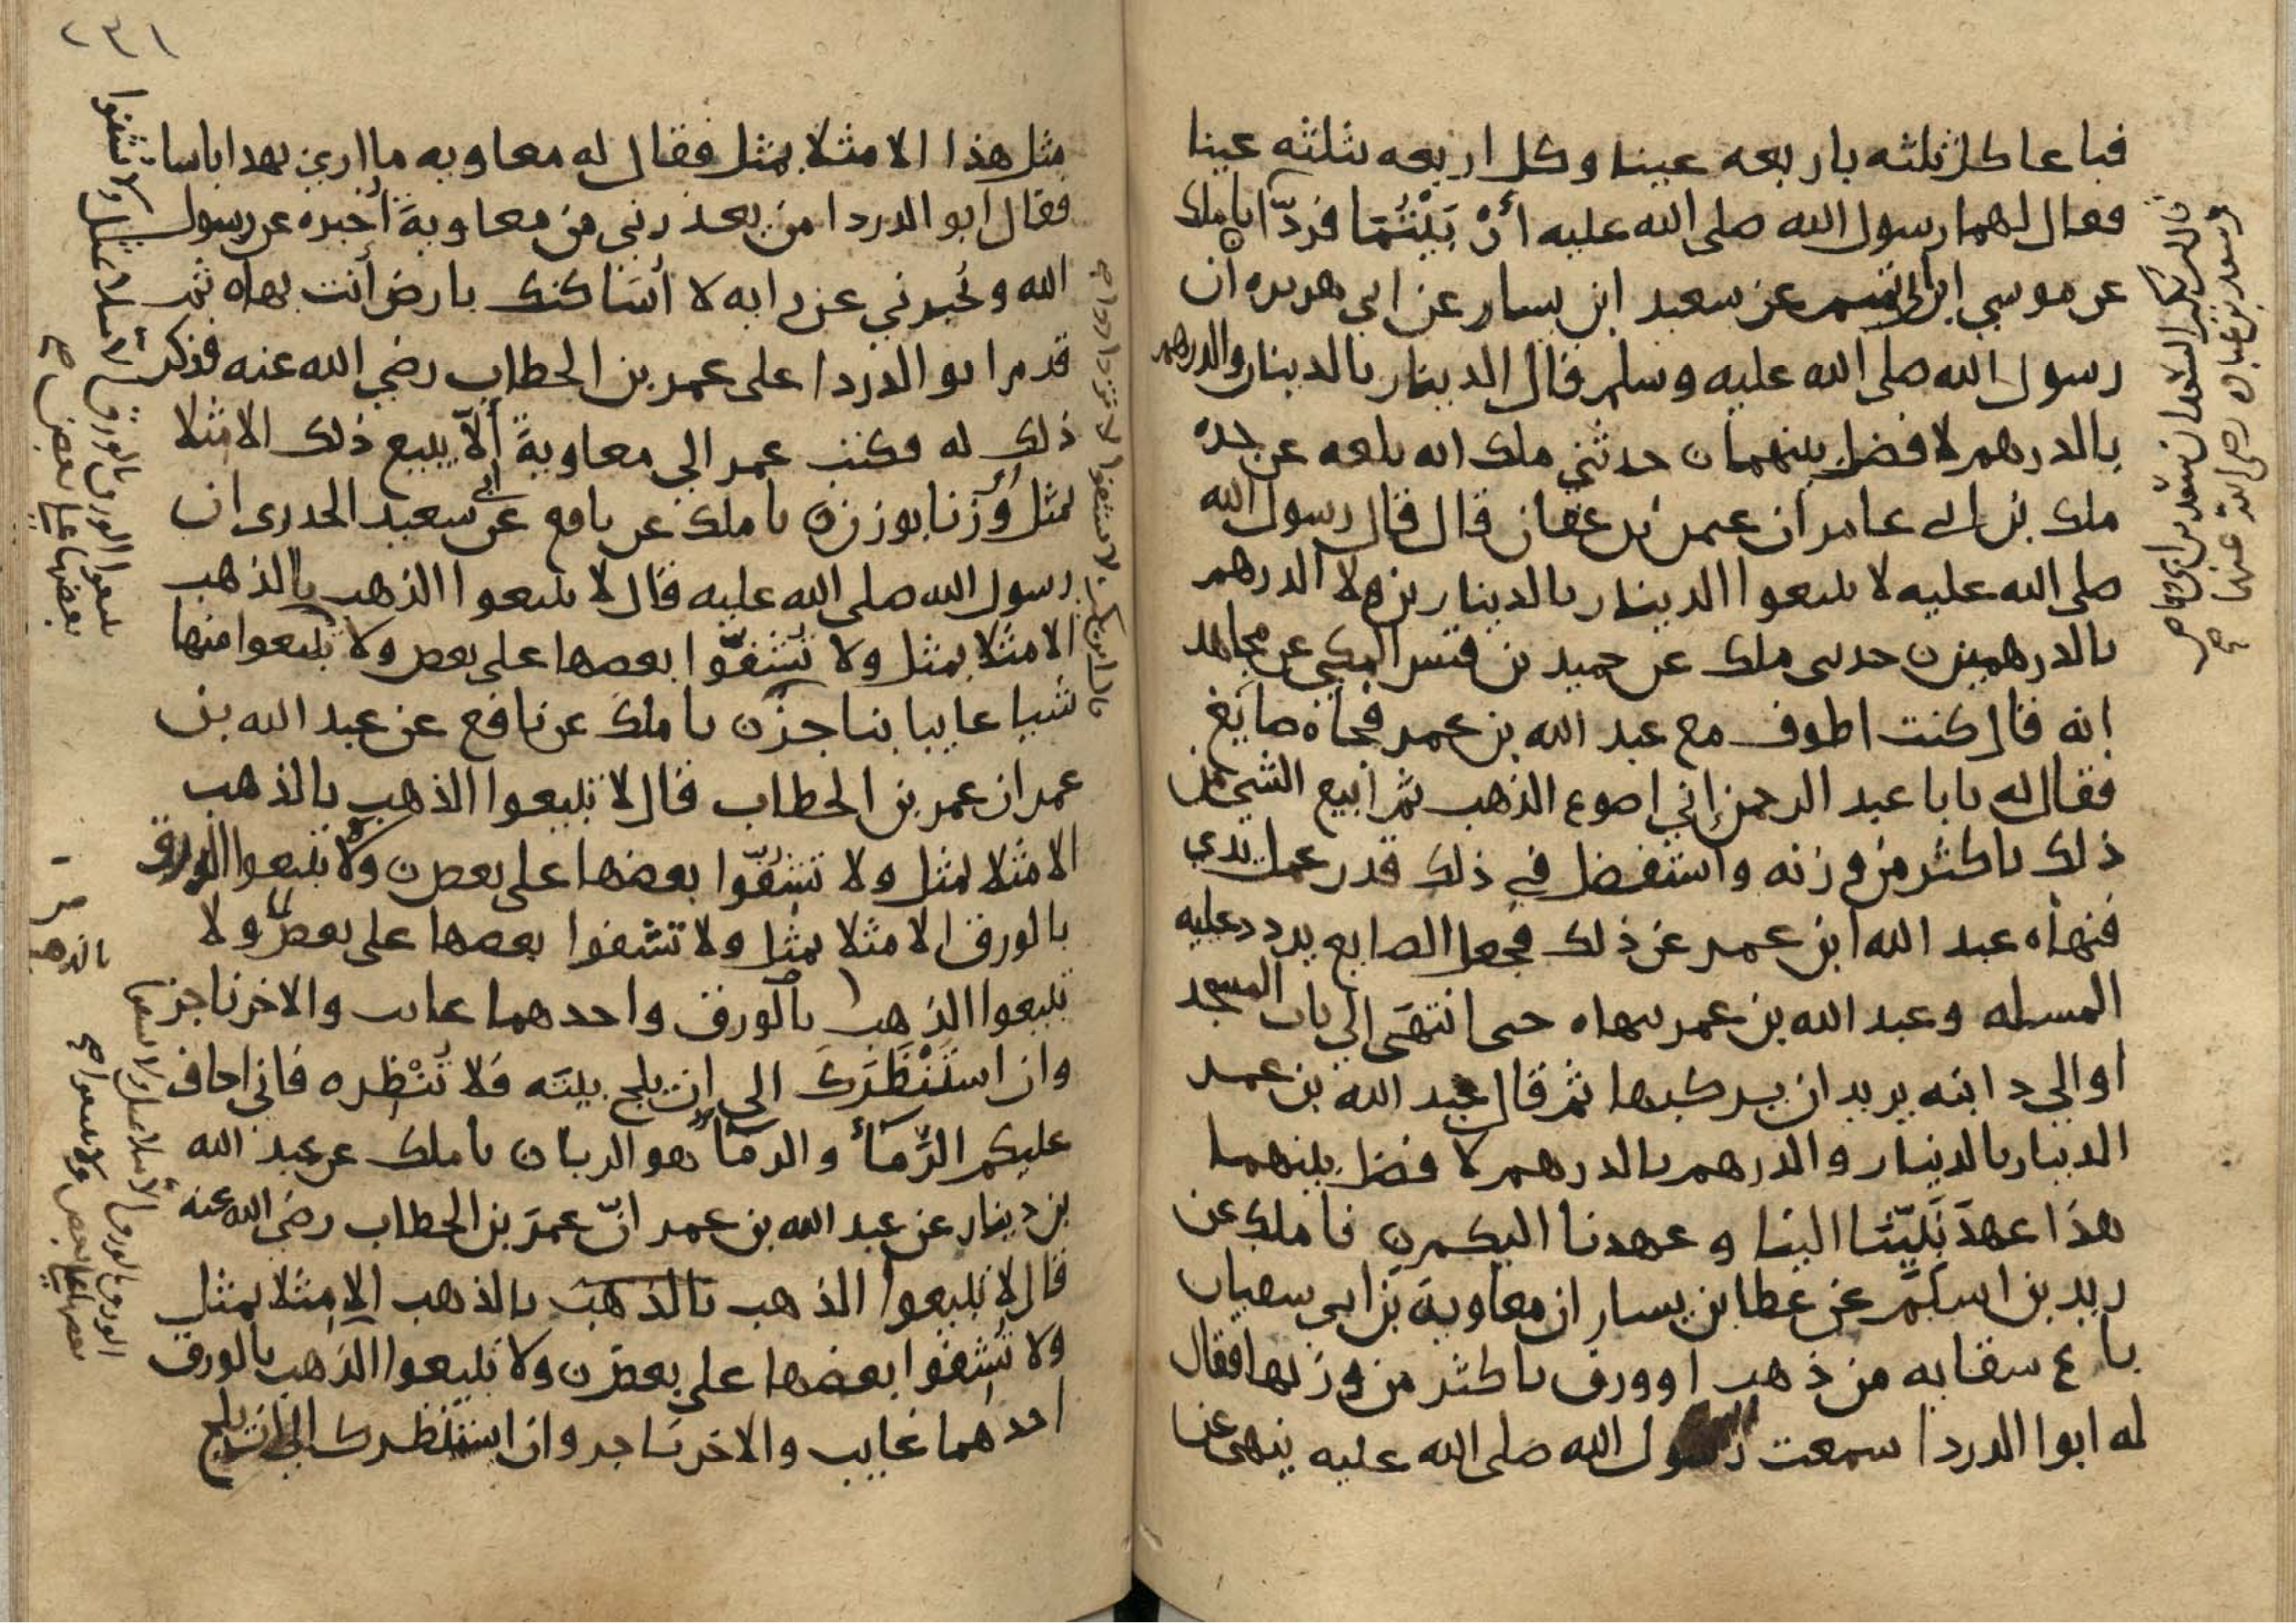 فباعا كل ثلثه باربعه عينا وكل اربعه بثلثه عينا
فقال لهما رسول الله صلى الله عليه أَرْبَيْتُمَا فردّا نا ملك
عن موسي ابن ابي تميم عن سعيد ابن يسار عن ابي هريره أن
رسول الله صلى الله عليه وسلم قال الدينار بالدينار والدرهم
بالدرهم لا فضل بينهما ن حدثني ملك انه بلغه عن جده
ملك بن ابي عامر ان عثمن بن عفان قال قال رسول الله
صلى الله عليه لا تبيعوا الدينار بالدينارين ولا الدرهم
بالدرهمين ن حدثني ملك عن حميد بن قيس المكي عن مجاهد
انه قال كنت اطوف مع عبد الله بن عمر فجاه صايغ
فقال له يابا عبد الرحمن إني اصوغ الذهب ثم ابيع الشي من
ذلك باكثر من وزنه واستفضل في ذلك قدر عمل يدي
فنهاه عبد الله ابن عمر عن ذلك فجعل الصايغ يردد عليه
المسله وعبد الله بن عمر ينهاه حتى انتهَى الي باب المسجد
او الي دابته يريد ان يركبها ثم قال عبد الله بن عمر
الدينار بالدينار والدرهم بالدرهم لا فضل بينهما
هذا عهدُ نَبِيّنا الينا وعهدنا اليكم ن نا ملك عن
زيد بن اسلم عن عطا بن يسار ان معاوية بن ابي سفيان
باع سقايه من ذهب او ورق باكثر من وزنها فقال
له ابوا الدردا سمعت رسول الله صلى الله عليه ينهى عن
وسعد بن عباده رضى الله عنهما
مثل هذا الا مثلا بمثل فقال له معاويه ما ارى بهذا باسا
فقال ابو الدردا من يعذرني من معاوية أخبره عن رسول
الله ويُخبرني عن رايه لا أُسَاكنك بارض أنت بها ن ثم
قدم ابو الدردا على عمر بن الخطاب رضي الله عنه فذكر
ذلك له فكتب عمر الي معاوية ألاّ يبيع ذلك الا مثلا
بمثل وَزنا بوزن ن نا ملك عن نافع عن ابي سعيد الخدرى ان
رسول الله صلى الله عليه قال لا تبيعوا الذهب بالذهب
الا مثلا بمثل ولا تُشفّوا بعضها على بعض ولا تبيعوا منها
شيا غايبا بناجز ن نا ملك عن نافع عن عبد الله بن
عمر ان عمر بن الخطاب قال لا تبيعوا الذهب بالذهب
الا مثلا بمثل ولا تشفّوا بعضها على بعض ن ولا تبيعوا الورق
بالورق الا مثلا بمثل ولا تشفوا بعضها على بعض ولا
تبيعوا الذهب بالورق واحدهما غايب والاخر ناجز
وان استَنْظَرَك الى ان يلج بيته فلا تُنْظِره فاني اخاف
عليكم الرَّمَأ والرمَا هو الربا ن نا ملك عن عبد الله
بن دينار عن عبد الله بن عمر انّ عمرَ بن الخطاب رضي الله عنه
قال لا تبيعوا الذهب بالذهب الا مثلا بمثل
ولا تُشفوا بعضها على بعض ن ولا تبيعوا الذهب بالورق
احدهما غايب والاخر ناجز وان استنظرك الى ان يلج